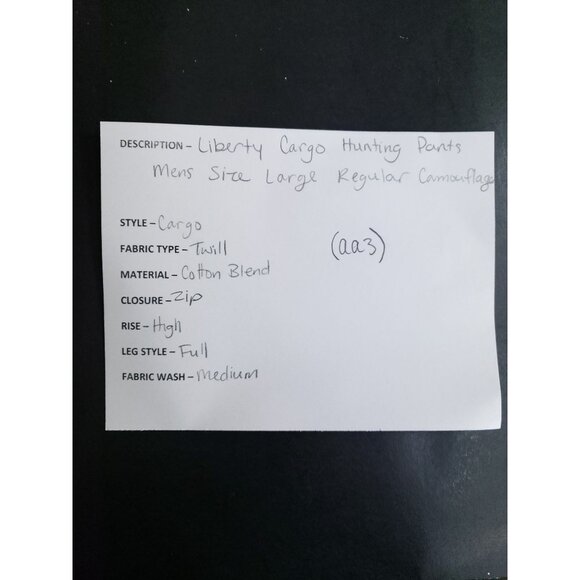 DESCRIPTION - Liberty Cargo Hunting Pants
Mens Size Large Regular Camouflage
STYLE - Cargo
FABRIC TYPE - Twill
(aa3)
MATERIAL - Cotton Blend
CLOSURE - Zip
RISE - High
LEG STYLE - Full
FABRIC WASH - Medium